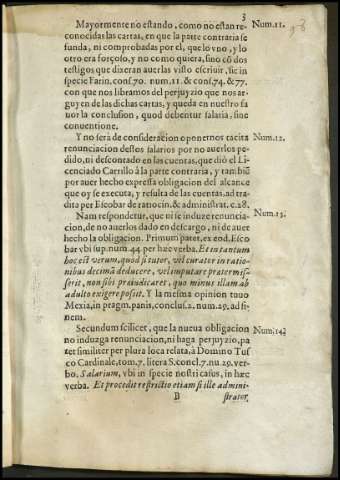 3
Mayormente no estando, como no estan re- Num.11.
conocidas las cartas, en que la parte contraria se
funda, ni comprobadas por el, que lo vno, y lo
otro era forçoso, y no como quiera, sino cõ dos
testigos que dixeran auerlas visto escriuir, sic in
specie Farin. conf.70. num.11. & conf.74. & 77.
con que nos libramos del perjuyzio que nos ar-
guyen de las dichas cartas, y queda en nuestro fa
uor la conclusion, quod debentur salaria, sine
conuentione.
Y no será de consideracion oponernos tacita Num.12.
renunciacion destos salarios por no auerlos pe-
dido, ni descontado en las cuentas, que dió el Li-
cenciado Carrillo à la parte contraria, y tambiẽ
por auer hecho expressa obligacion del alcance
que oy se executa, y resulta de las cuentas, ad tra-
dita per Escobar de ratocin. & administrat. c.28.
Nam respondetur, que ni se induze renuncia- Num.13.
cion, de no auerlos dado en descargo, ni de auer
hecho la obligacion. Primum patet, ex eod. Esco
bar vbi sup. num.44. per hæc verba. Et in tantum
hoc est verum, quod si tutor, vel curator in ratio-
nibus decimã deducere, vel imputare prætermis-
serit, non sibi præiudicaret, quo minus illam ab
adulto exigere possit. Y la mesma opinion tuuo
Mexia, in pragm. panis, conclus.2. num.29. ad fi-
nem.
Secundum scilicet, que la nueua obligacion Num.14.
no induzga renunciacion, ni haga perjuyzio, pa
tet similiter per plura loca relata, à Domino Tus
co Cardinale, tom.7. litera S. concl.7. nu.29. ver-
bo. Salarium, vbi in specie nostri casus, in hæc
verba. Et procedit restrictio etiam si ille admini-
B strator,